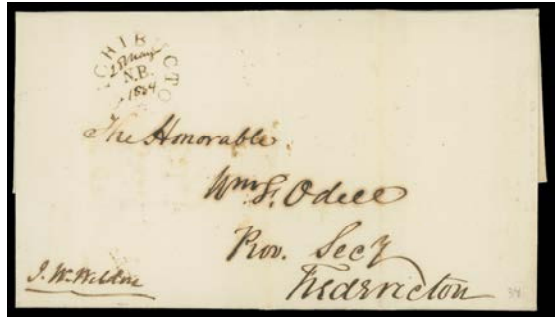 CHIBUCTO
28 May
N.B.
1834
The Honorable
Wm. F. Odell
Prov. Secy
Fredricton
J. W. Weldon
34